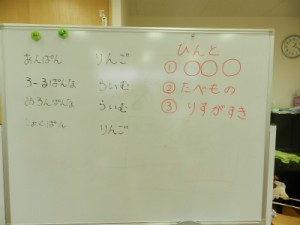 あんぱん りんご
ろーるぱんな ういむ
めろんぱんな ういむ
しょくぱん りんご
ひんと
① ○○○
② たべもの
③ りすがすき